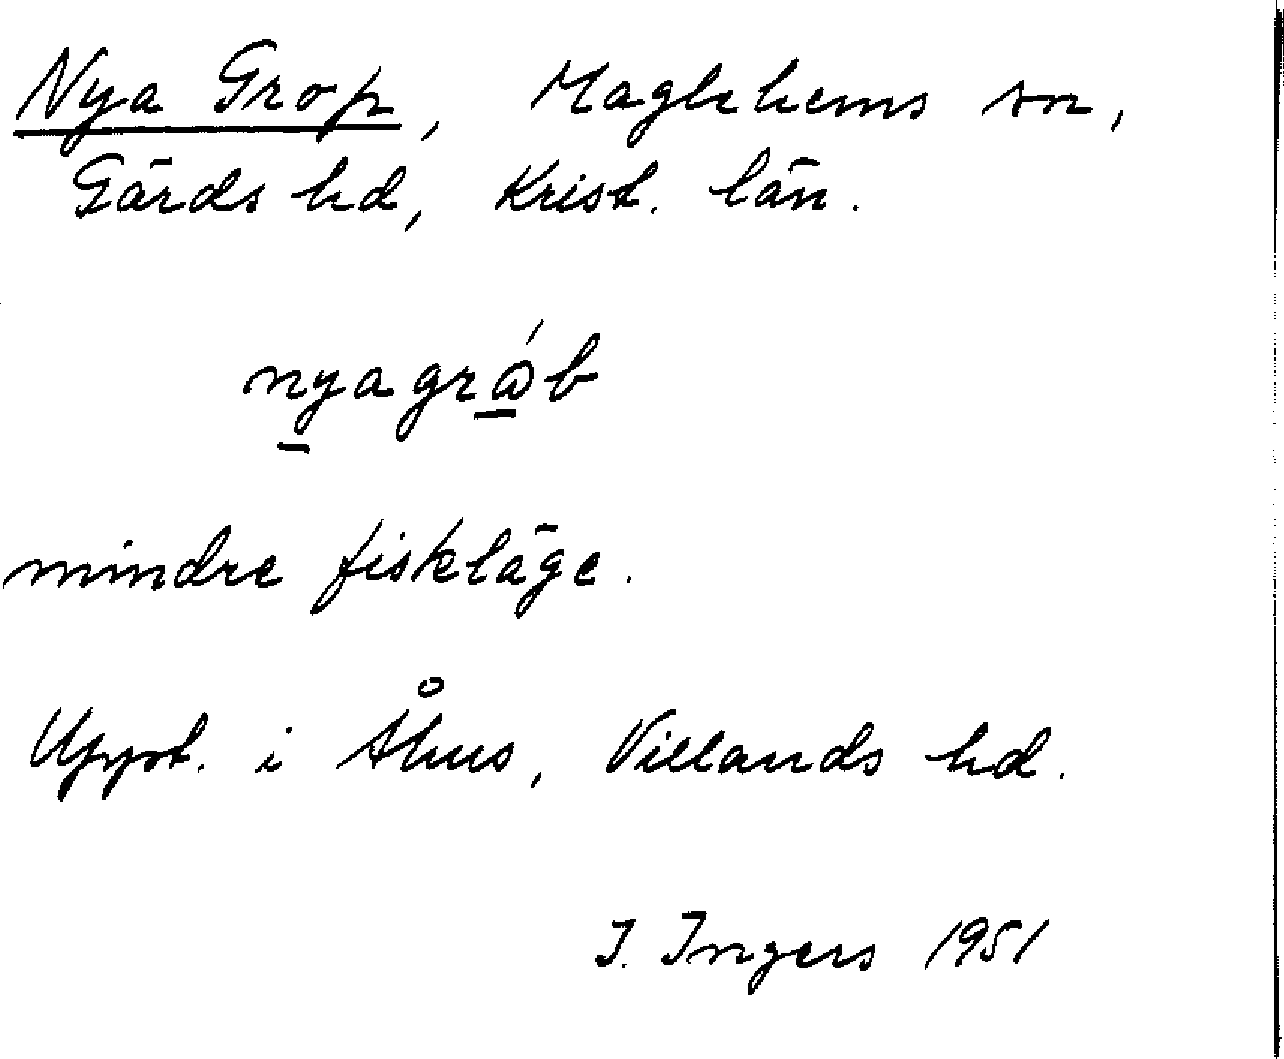 Nya Grop, Maglehems sn,
Gärds hd, Krist. län.
nyagrób
mindre fiskläge.
Uppt. i Åhus, Villands hd.
I. Ingers 1951